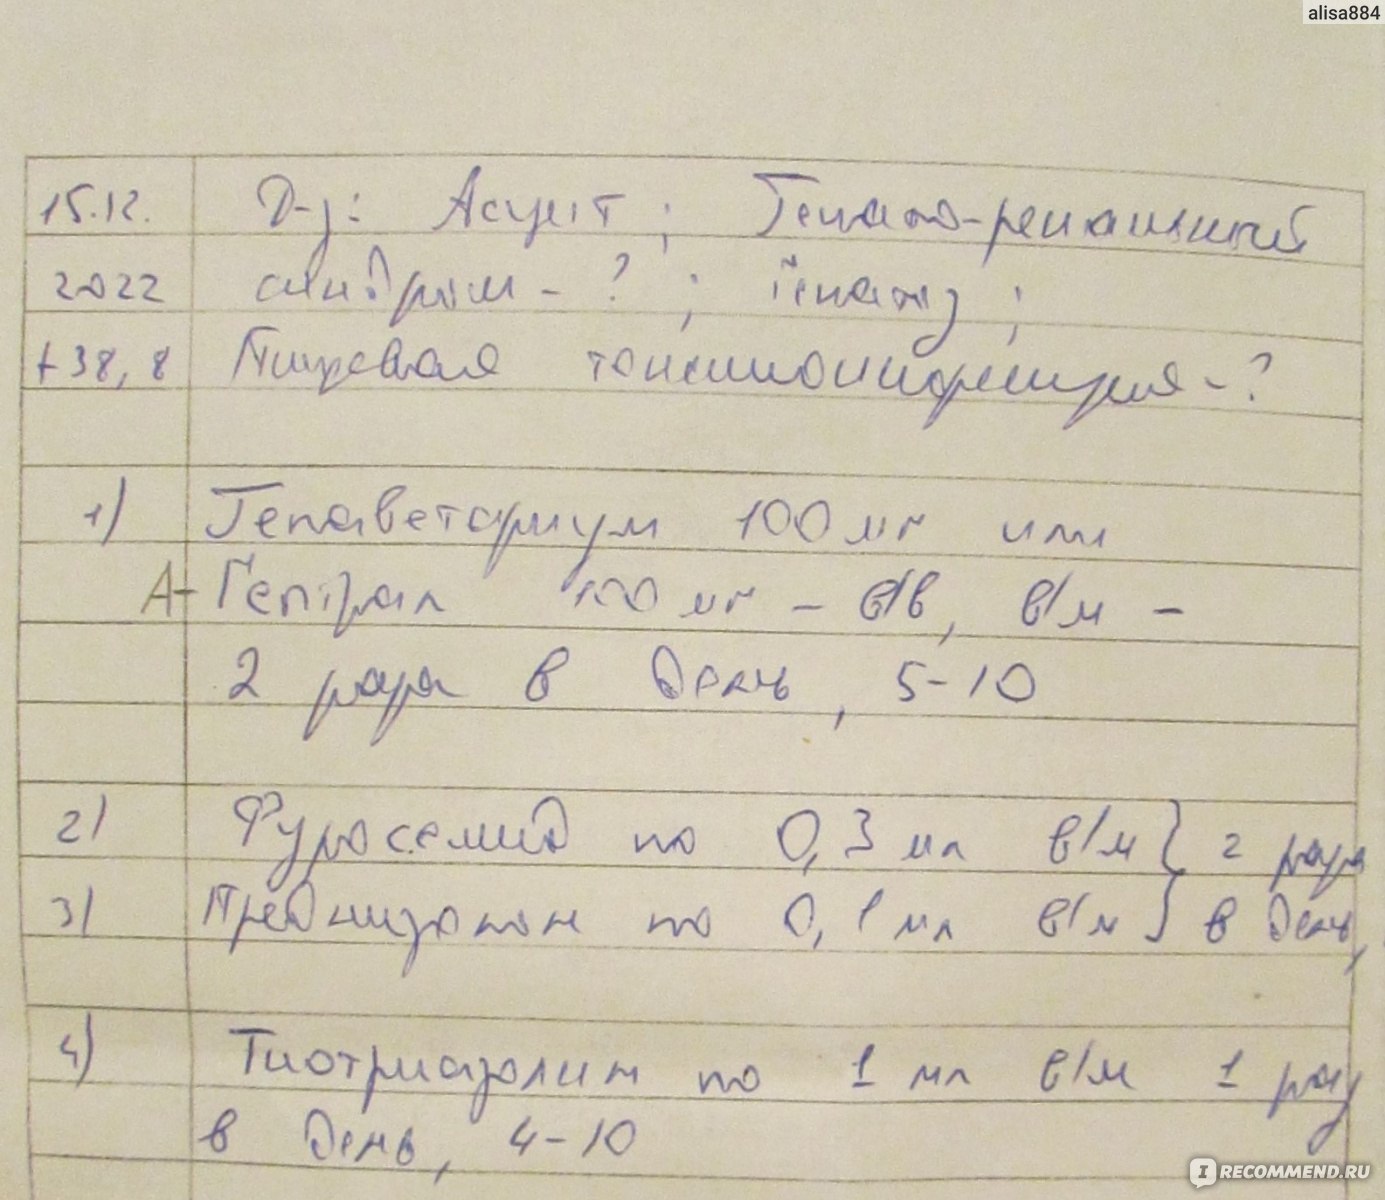 alisa884
15.12. Д-з: Асцит; Гепато-ренальный
2022 синдром-?; Гепатоз;
t 38,8 Пищевая токсикоинфекция-?
1) Гепаветариум 100 мг или
А- Гептрал 100 мг - в/в, в/м -
2 раза в день, 5-10
2) Фуросемид по 0,3 мл в/м } 2 раза
3) Преднизолон по 0,1 мл в/м } в день,
4) Тиотриазолин по 1 мл в/м 1 раз
в день, 4-10
IRECOMMEND.RU